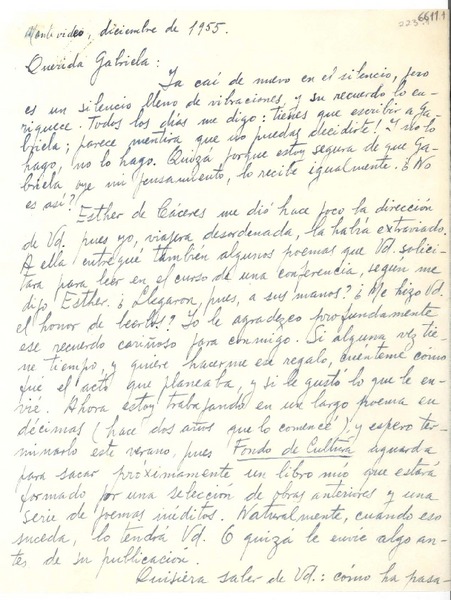 66111
223
Montevideo, diciembre de 1955.
Querida Gabriela:
Ya caí de nuevo en el silencio, pero
es un silencio lleno de vibraciones y su recuerdo lo en-
riquece. Todos los días me digo: tienes que escribir a Ga-
briela; parece mentira que no puedas decidirte! Y no lo
hago, no lo hago. Quizá porque estoy segura de que Ga-
briela oye mi pensamiento, lo recibe igualmente. ¿No
es así?
Esther de Cáceres me dió hace poco la dirección
de Vd. pues yo, viajera desordenada, la había extraviado.
A ella entregué también algunos poemas que Vd. solici-
tara para leer en el curso de una conferencia, según me
dijo Esther. ¿Llegaron, pues, a sus manos? ¿Me hizo Vd.
el honor de leerlos? Yo le agradezco profundamente
ese recuerdo cariñoso para conmigo. Si alguna vez tie-
ne tiempo, y quiere hacerme ese regalo, cuénteme como
fué el acto que planeaba, y si le gustó lo que le en-
vié. Ahora estoy trabajando en un largo poema en
décimas (hace dos años que lo comencé), y espero ter-
minarlo este verano, pues Fondo de Cultura aguarda
para sacar próximamente un libro mío que estará
formado por una selección de obras anteriores y una
serie de poemas inéditos. Naturalmente, cuando eso
suceda, lo tendrá Vd. O quizá le envíe algo an-
tes de su publicación.
Quisiera saber de Vd.: cómo ha pasa-